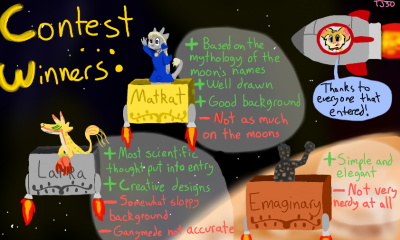 Contest
Winners:
TJ30
MatRat
+ Based on the
mythology of the
moon's names
+ Well drawn
+ Good background
- Not as much
on the moons
Thanks to
everyone that
entered!
Lanka
+ Most scientific
thought put into entry
+ Creative designs
- Somewhat sloppy
background
- Ganymede not accurate
Emaginary
+ Simple and
elegant
- Not very
nerdy at all